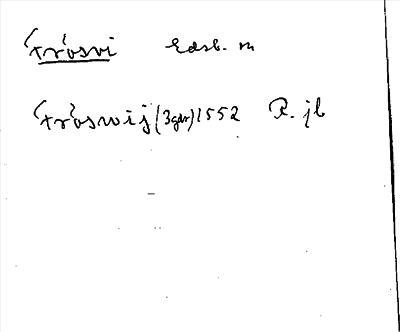 Frösvi Edsb. sn
Fröswij (3 gdr) 1552 R. jb